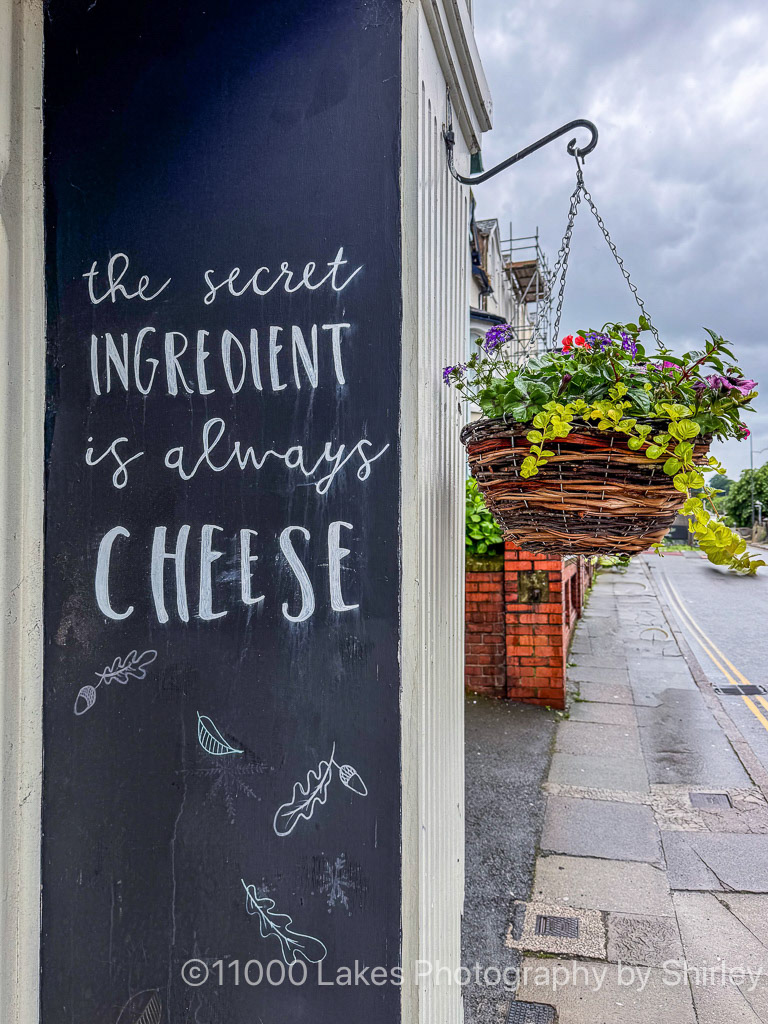 the secret
INGREDIENT
is always
CHEESE
©11000 Lakes Photography by Shirley